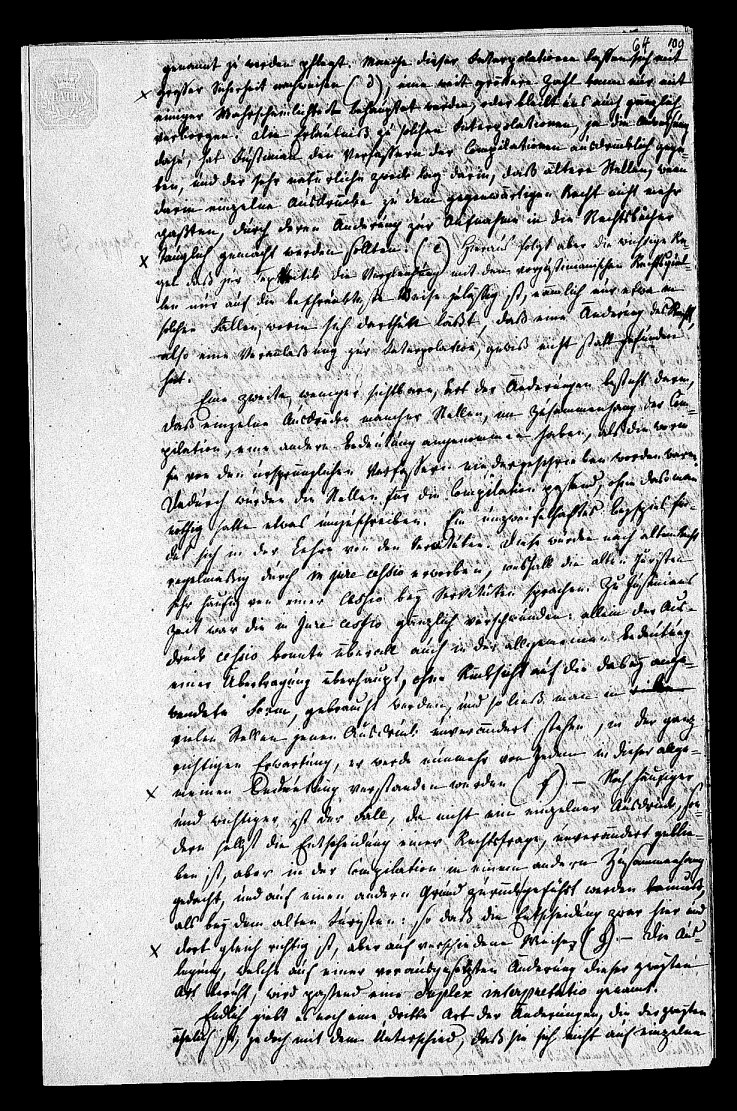 64 109
genannt zu werden pflegt. Manche dieser Interpolationen lassen sich mit
großer Sicherheit nachweisen (d), eine weit größere Zahl kann nur mit
einiger Wahrscheinlichkeit behauptet werden, oder bleibt uns auch gänzlich
verborgen. Die Erlaubniß zu solchen Interpolationen, ja die Anweisung
dazu, hat Justinian den Verfassern der Compilationen ausdrücklich gege-
ben, und der sehr natürliche Zweck lag darin, daß ältere Stellen, wenn
darin einzelne Ausdrücke zu dem gegenwärtigen Recht nicht mehr
paßten, durch deren Änderung zur Aufnahme in die Rechtsbücher
tauglich gemacht werden sollten. (e) Hieraus folgt aber die wichtige Re-
gel daß zur Textkritik die Vergleichung mit dem vorjustinianischen Rechtsquel-
len nur auf die beschränkteste Weise zulässig ist, nämlich nur etwa in
solchen Fällen, worin sich darthun läßt, daß eine Änderung des Rechts,
also eine Veranlaßung zur Interpolation, gewiß nicht statt gefunden
hat.
Eine zweite, weniger sichtbare, Art der Änderungen besteht darin,
daß einzelne Ausdrücke mancher Stellen, im Zusammenhang der Com-
pilation, eine andere Bedeutung angenommen haben, als die worin
sie von den ursprünglichen Verfassern niedergeschrieben worden waren.
Dadurch wurden die Stellen für die Compilation passend, ohne daß man
nöthig hatte etwas umzuschreiben. Ein unzweifelhaftes Beyspiel fin-
det sich in der Lehre von den Servituten. Diese wurden nach altem Recht
regelmäßig durch in jure cessio erworben, weshalb die alten Juristen
sehr häufig von einer Cessio bey Servituten sprachen. Zu Justinians
Zeit war die in jure cessio gänzlich verschwunden: allein der Aus-
druck cessio konnte überall auch in der allgemeinen Bedeutung
einer Übertragung überhaupt, ohne Rücksicht auf die dabey ange-
wendete Form, gebraucht werden, und so ließ man in
vielen Stellen jenen Ausdruck unverändert stehen, in der ganz
richtigen Erwartung, er werde nunmehr von Jedem in dieser allge-
meinen Bedeutung verstanden werden (f) – Noch häufiger
und wichtiger ist der Fall, da nicht ein einzelner Ausdruck, son-
dern selbst die Entscheidung einer Rechtsfrage, unverändert geblie-
ben ist, aber in der Compilation in einem andern Zusammenhang
gedacht, und auf einen andern Grund zurückgeführt werden konnte,
als bey dem alten Juristen: so daß die Entscheidung zwar hier und
dort gleich richtig ist, aber auf verschiedene Weise (g) – Die Aus-
legung, welche auf einer vorausgesetzten Änderung dieser zweyten
Art beruht, wird passend eine duplex interpretatio genannt.
Endlich giebt es noch eine dritte Art der Änderungen, die der zweyten
ähnlich ist, jedoch mit dem Unterschied, daß sie sich nicht auf einzelne